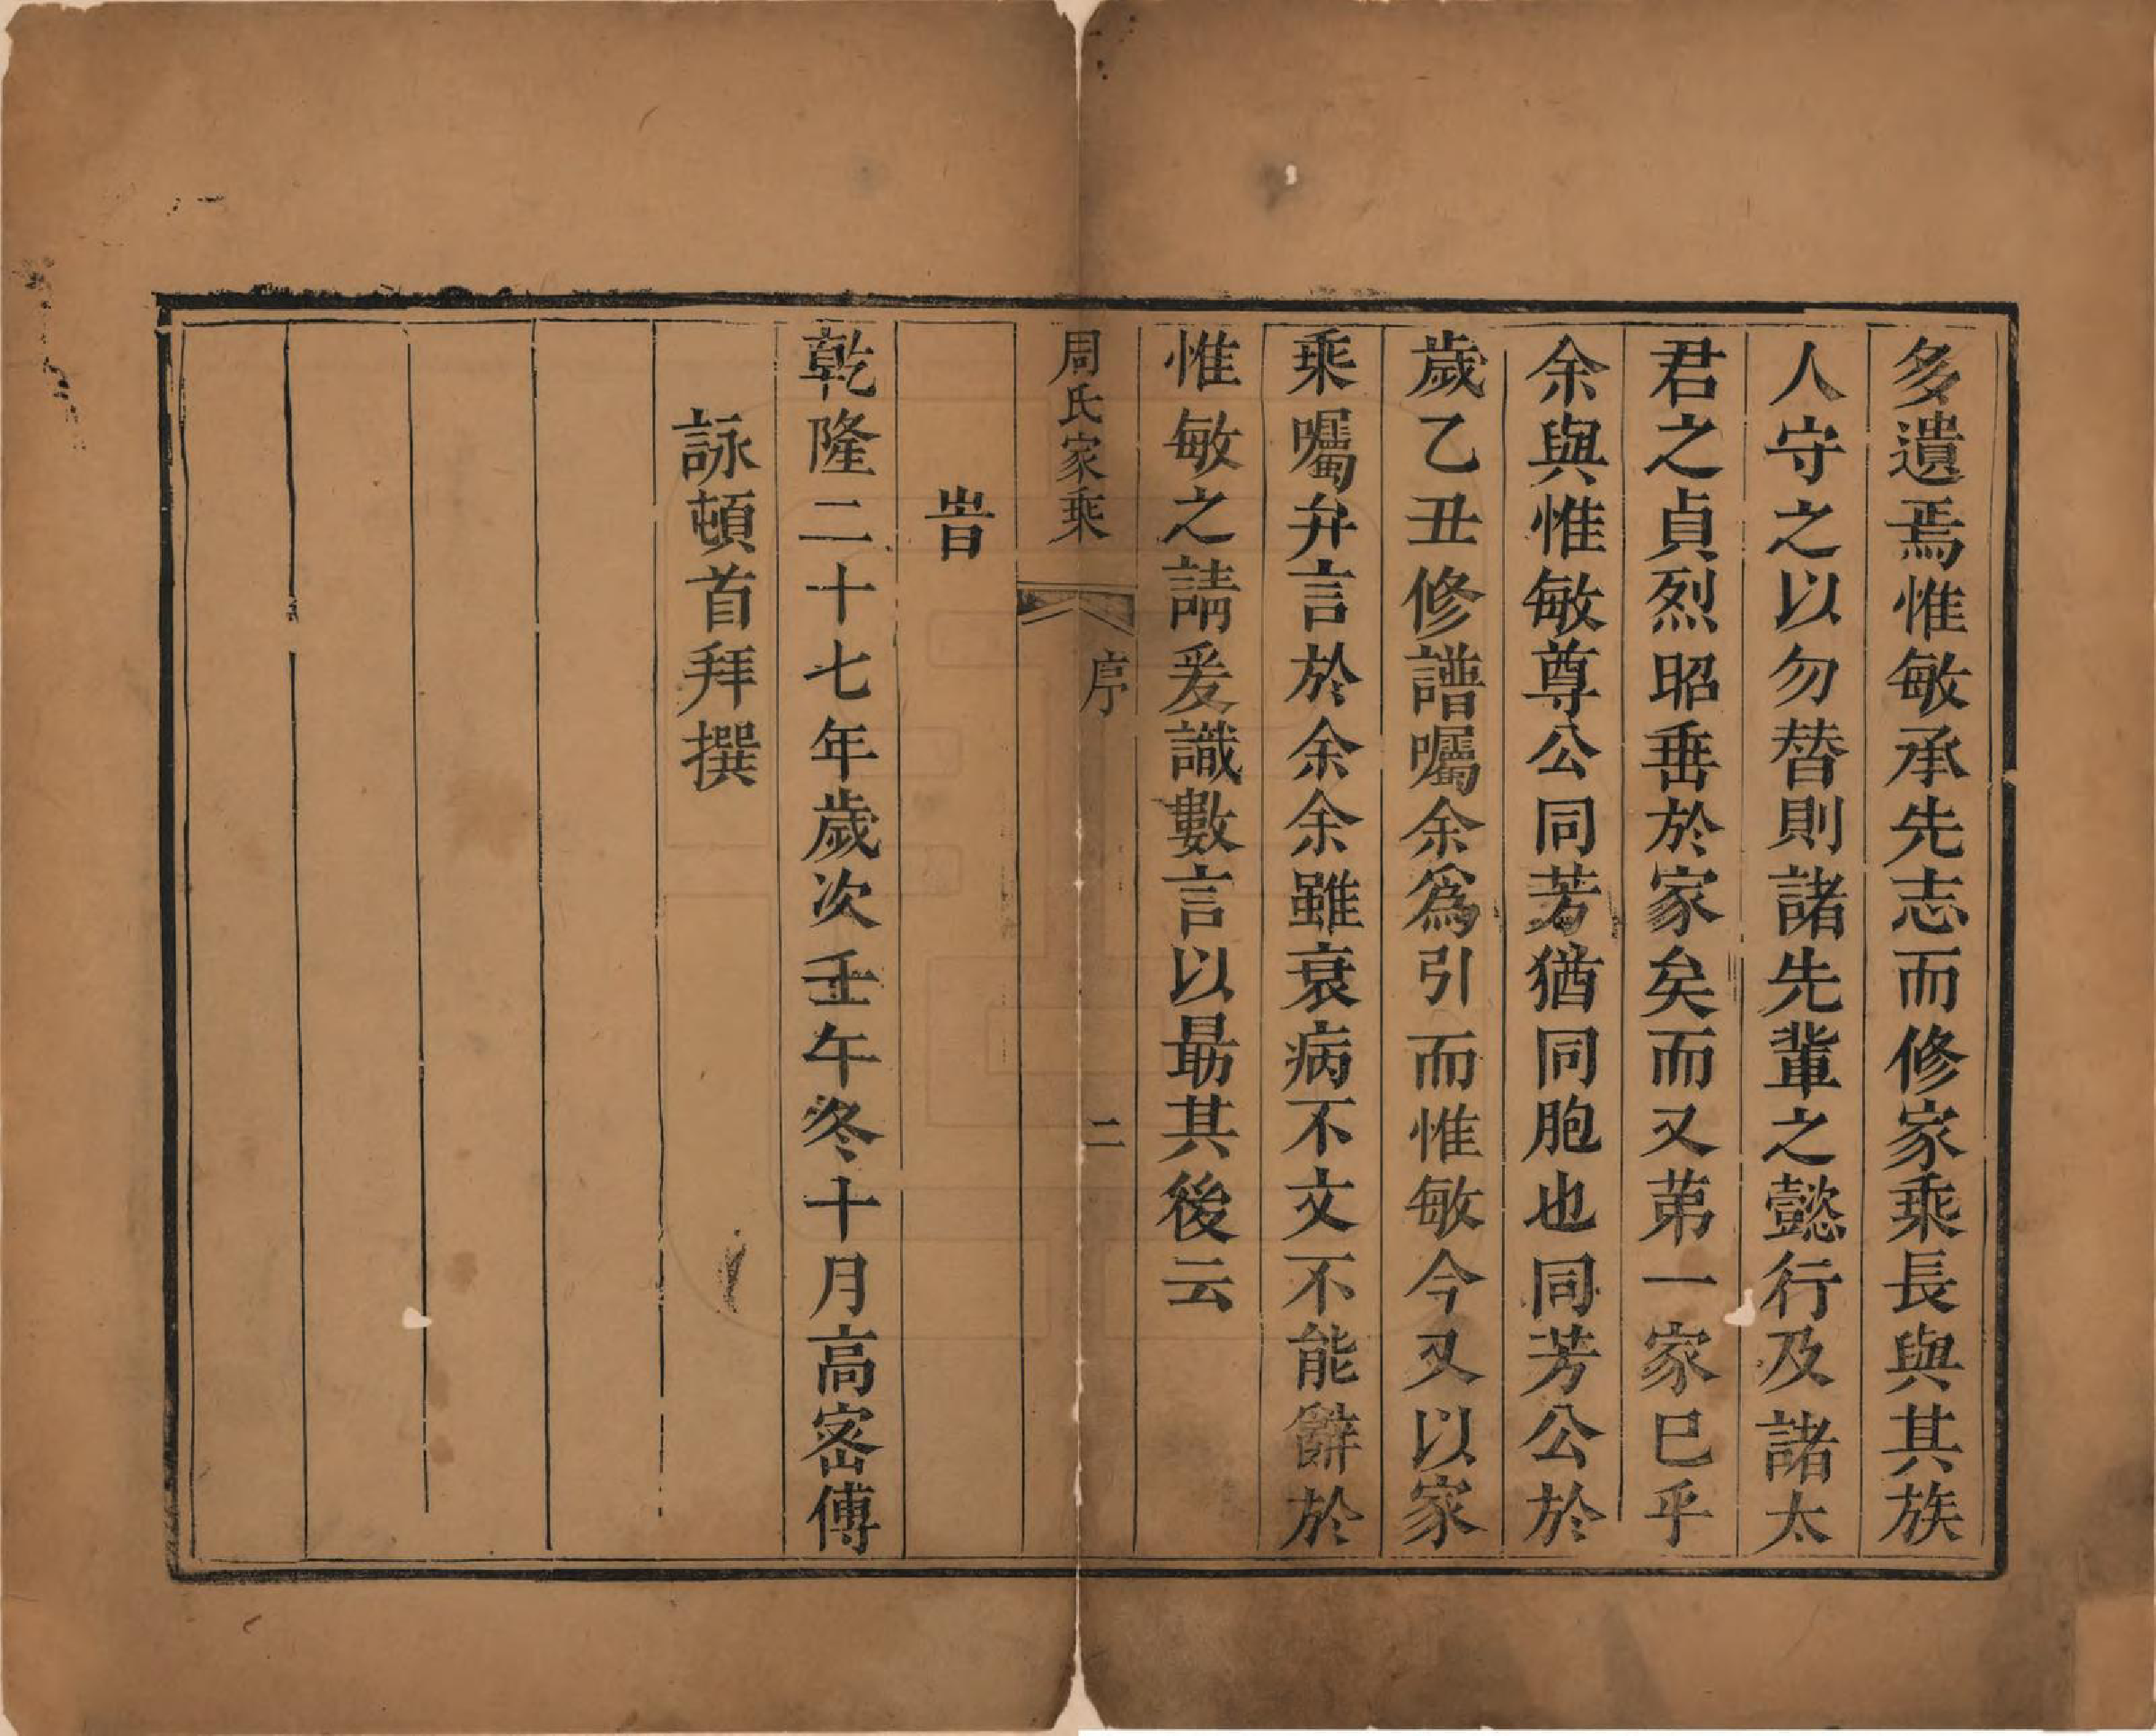 多遺焉惟敏承先志而修家乘長與其族
人守之以勿替則諸先輩之懿行及諸太
君之貞烈昭垂於家矣而又第一家巳乎
余與惟敏尊公同芳猶同胞也同芳公於
歲乙丑修譜囑余爲引而惟敏今又以家
乘囑弁言於余余雖衰病不文不能辭於
惟敏之請爰識數言以勗其後云
周氏家乘 序 二
旹
乾隆二十七年歲次壬午冬十月高密傅
詠頓首拜撰